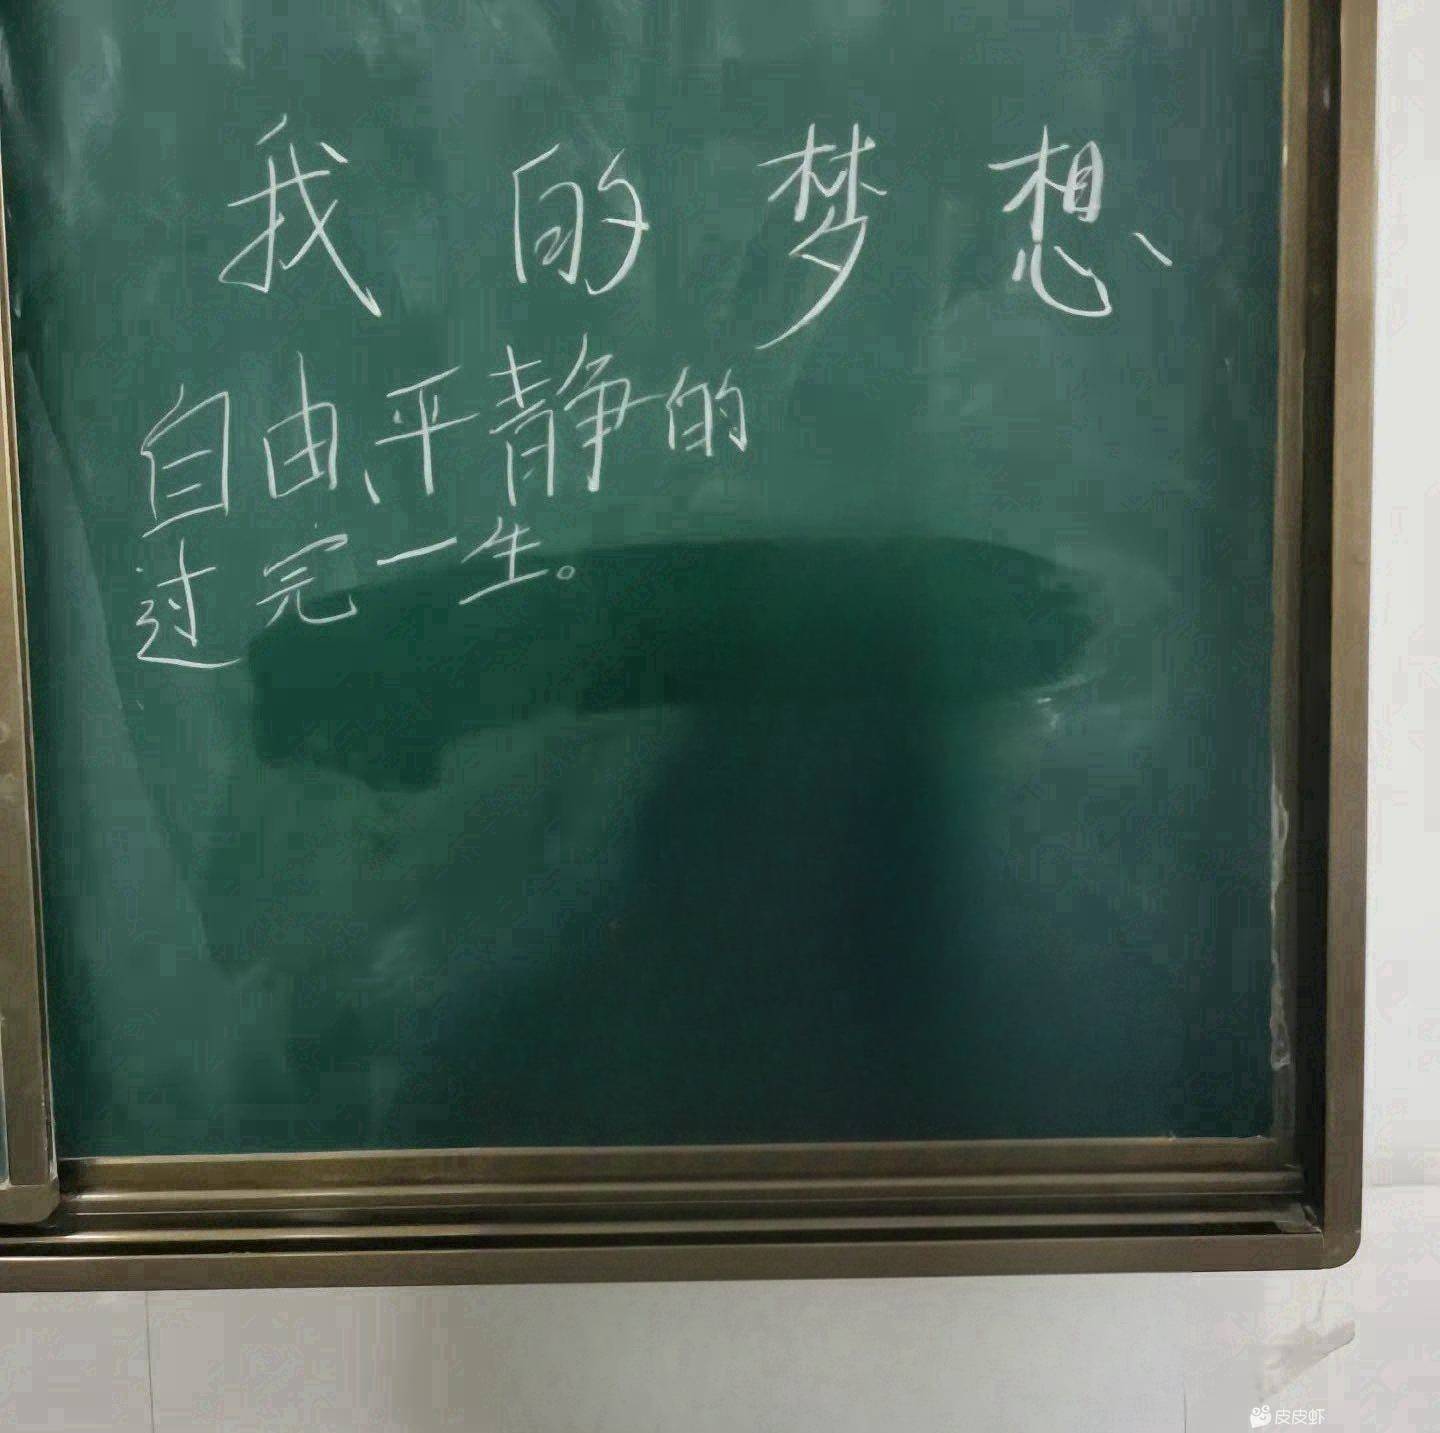 我的梦想
自由、平静的
过完一生。
皮皮虾